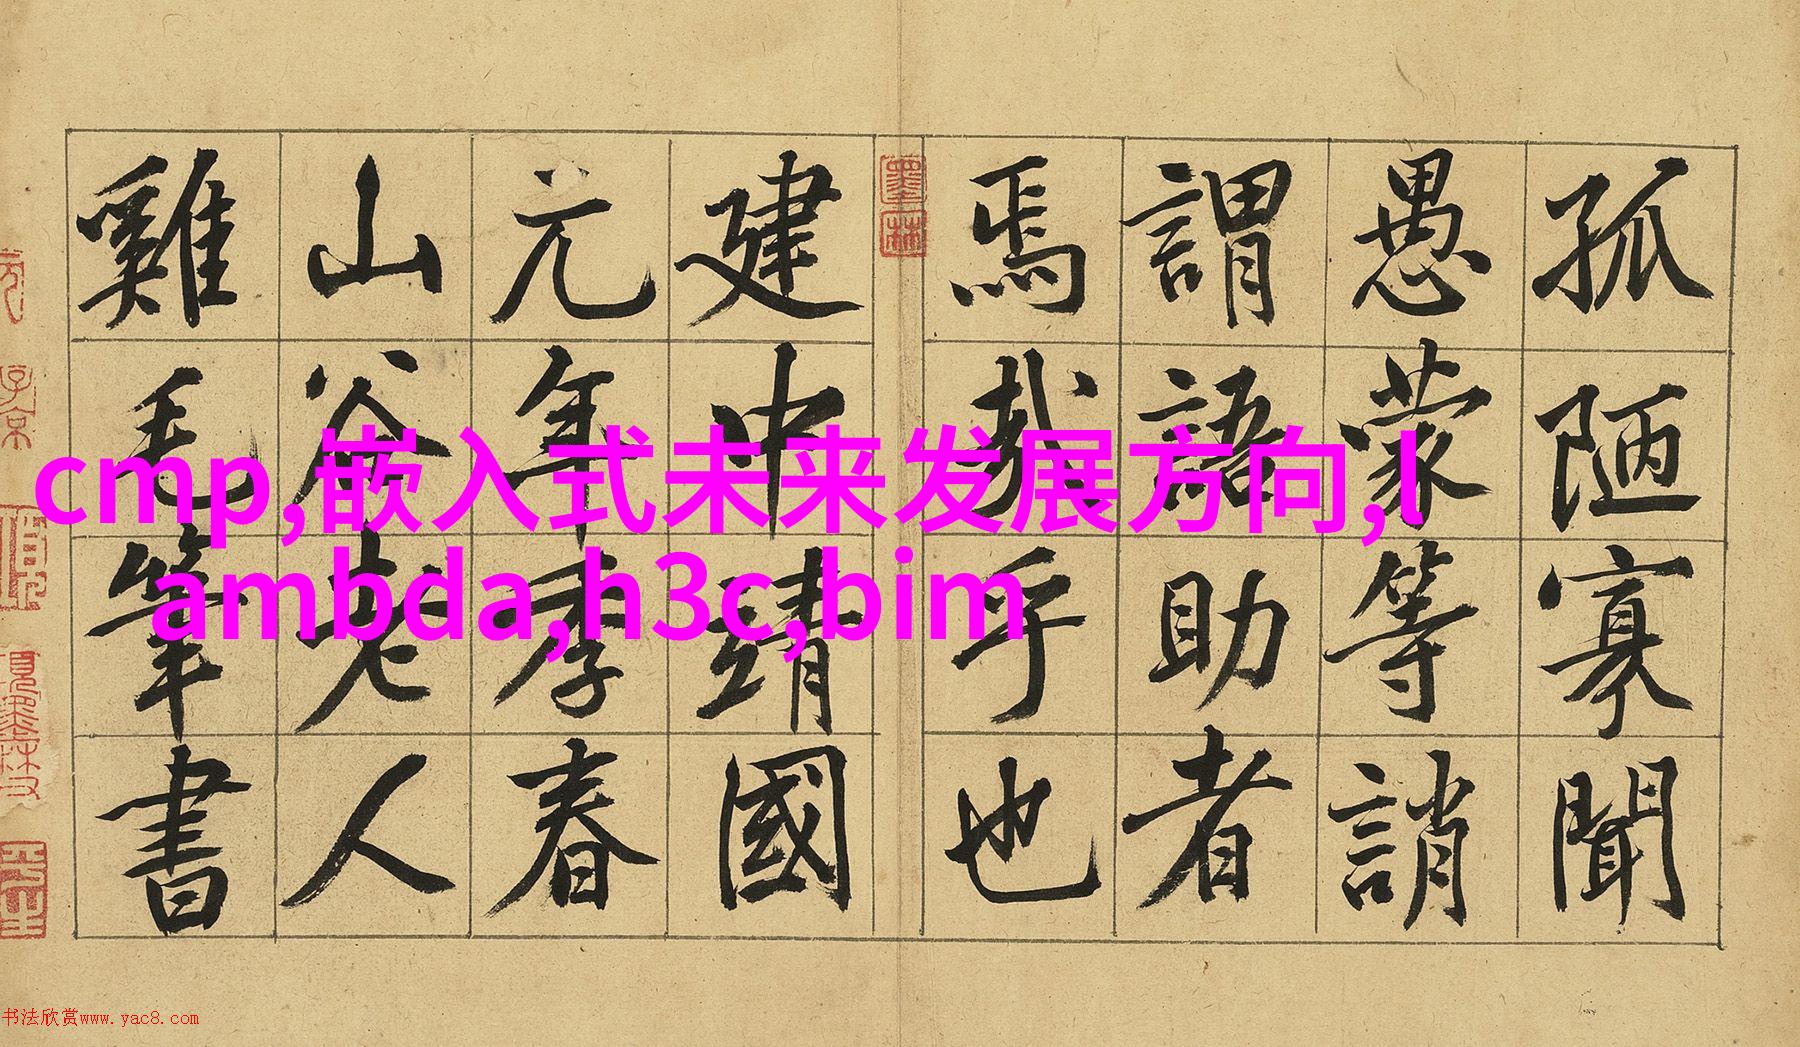 孤陋寡聞
愚蒙等誚
謂語助者
焉哉乎也
建中靖國
元年季春
山谷老人
雞毛筆書
墨林
cmp,嵌入式未来发展方向,l
ambda,h3c,bim
书法欣赏www.yac8.com